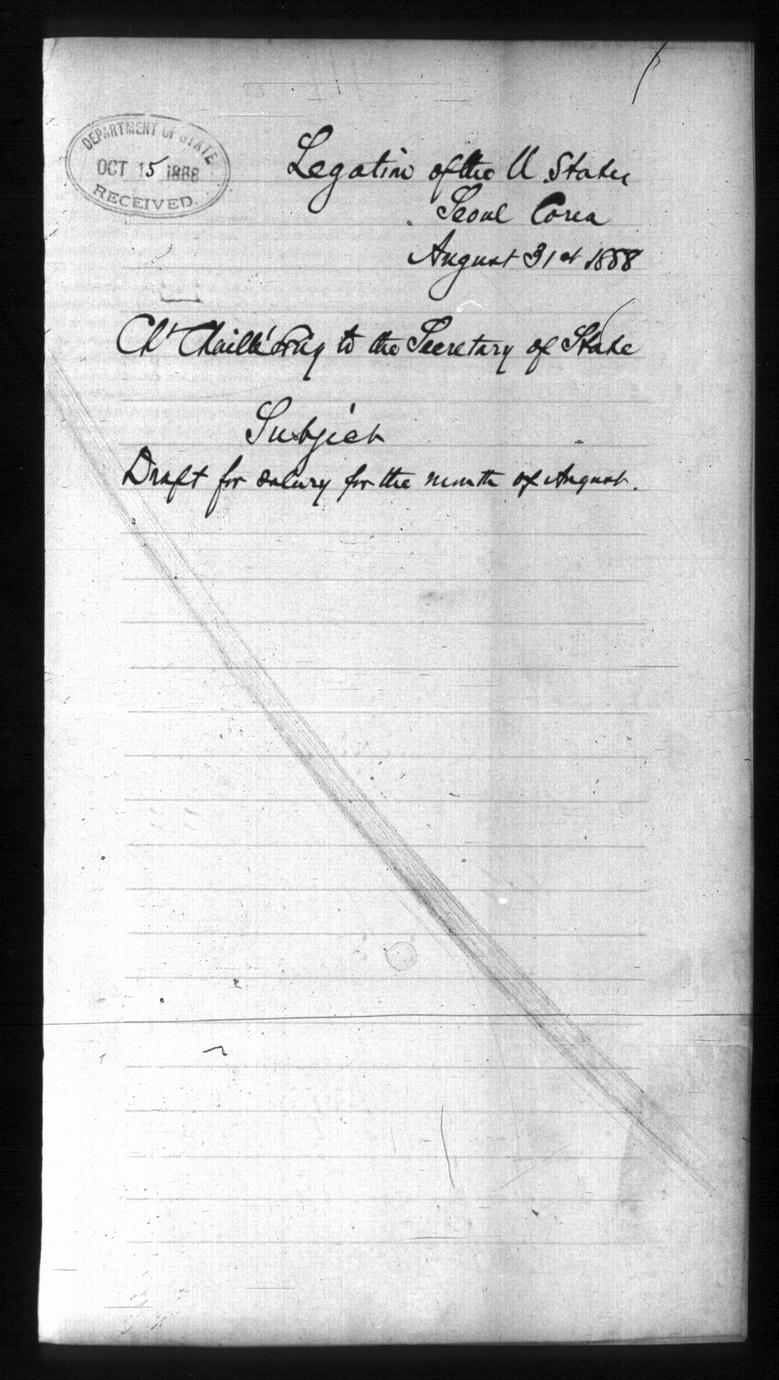 DEPARTMENT OF STATE
OCT 15 1888
RECEIVED.
Legation of the U States
Seoul Corea
August 31st 1888
Ch. Chaillé Long to the Secretary of State
Subject
Draft for salary for the month of August.